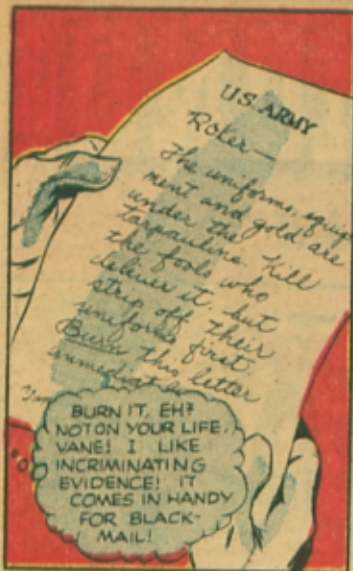 U.S. ARMY
Roker—
The uniforms, equip
ment and gold are
under the
tarpaulins. Kill
the fools who
deliver it but
strip off their
uniforms first.
Burn this letter
immediat
BURN IT, EH?
NOT ON YOUR LIFE,
VANE! I LIKE
INCRIMINATING
EVIDENCE! IT
COMES IN HANDY
FOR BLACK-
MAIL!